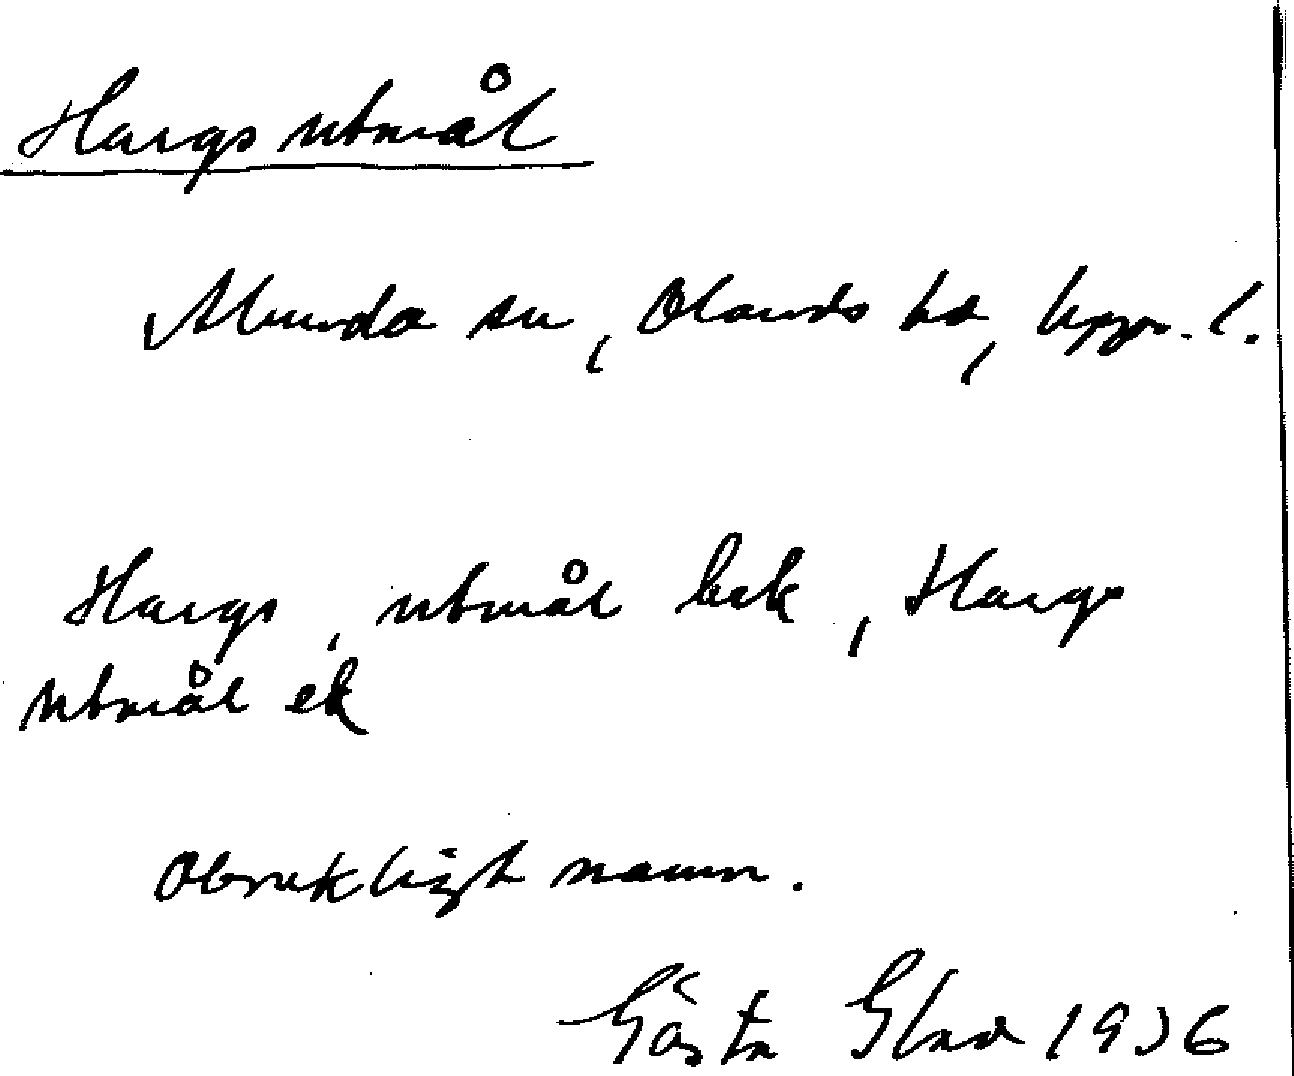 Hargs utmål
Alunda sn, Olands hd, Upps. l.
Hargs, utmål bek, Hargs
utmål ek
Obrukligt namn.
Gösta Glad 1936